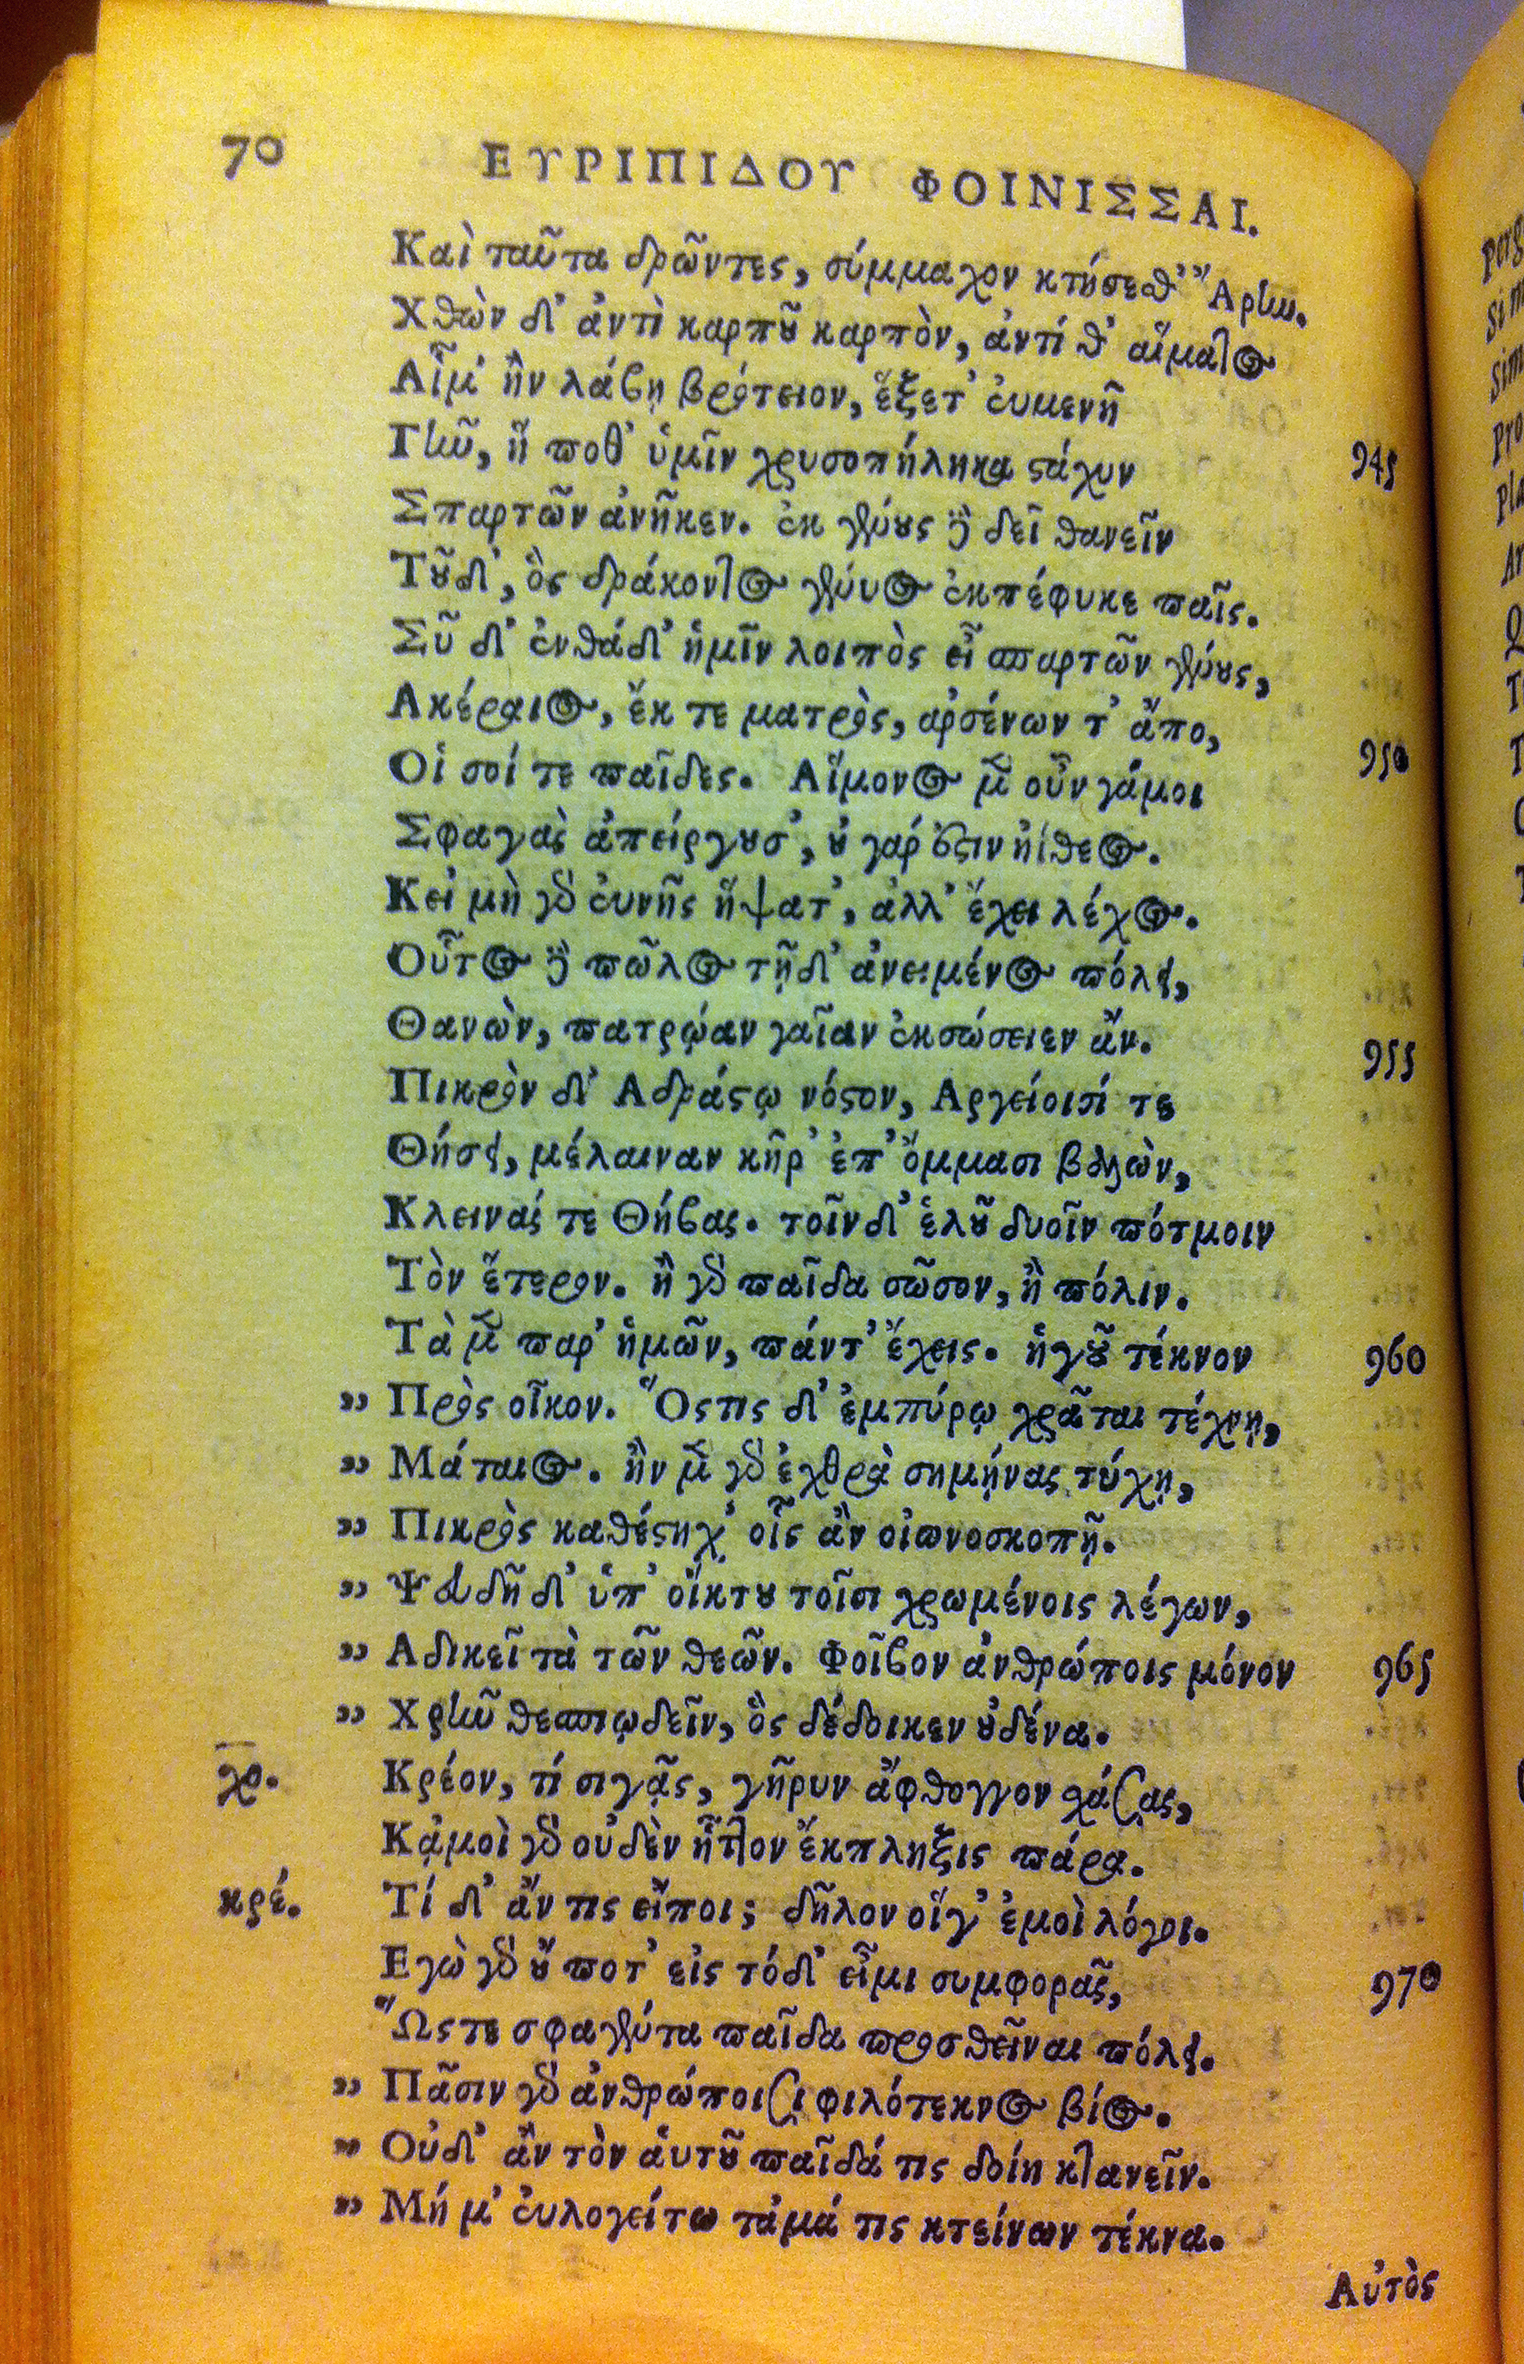 70 ΕΥΡΙΠΙΔΟΥ ΦΟΙΝΙΣΣΑΙ.
Καὶ ταῦτα δρῶντες, σύμμαχον κτήσεθ' Ἄρην.
Χθὼν δ' ἀντὶ καρποῦ καρπὸν, ἀντί θ' αἵματος
Αἷμ' ἢν λάβῃ βρότειον, ἕξετ' εὐμενῆ
Γῆν, ἥ ποθ' ὑμῖν χρυσοπήληκα στάχυν 945
Σπαρτῶν ἀνῆκεν. ἐκ γένους δὲ δεῖ θανεῖν
Τοῦδ', ὃς δράκοντος γένυος ἐκπέφυκε παῖς.
Σῦ δ' ἐνθάδ' ἡμῖν λοιπὸς εἶ σπαρτῶν γένους,
Ακέραιος, ἔκ τε ματρὸς, αρσένων τ' ἄπο, 950
Οἱ σοί τε παῖδες. Αἵμονος μὲν οὖν γάμοι
Σφαγὰς ἀπείργουσ', οὐ γάρ ἐστιν ἠίθεος.
Κεἰ μὴ γὰρ εὐνῆς ἥψατ', ἀλλ' ἔχει λέχος.
Οὗτος δὲ πῶλος τῇδ' ἀνειμένος πόλει,
Θανὼν, πατρῴαν γαῖαν ἐκσώσειεν ἄν. 955
Πικρὸν δ' Αδράστῳ νόστον, Αργείοισί τε
Θήσει, μέλαιναν κῆρ' ἐπ' ὄμμασι βαλὼν,
Κλεινάς τε Θήβας. τοῖνδ' ἑλοῦ δυοῖν πότμοιν
Τὸν ἕτερον. ἢ γὰρ παῖδα σῶσον, ἢ πόλιν.
Τὰ μὲν παρ' ἡμῶν, πάντ' ἔχεις. ἡγοῦ τέκνον 960
„ Πρὸς οἶκον. Ὅςτις δ' ἐμπύρῳ χρᾶται τέχνῃ,
„ Μάταιος. ἢν μὲν γὰρ ἐχθρὰ σημήνας τύχῃ,
„ Πικρὸς καθέστηχ' οἷς ἂν οἰωνοσκοπῇ.
„ Ψευδῆ δ' ὑπ' οἴκτου τοῖσι χρωμένοις λέγων,
„ Αδικεῖ τὰ τῶν θεῶν. Φοῖβον ἀνθρώποις μόνον 965
„ Χρῆν θεσπιῳδεῖν, ὃς δέδοικεν οὐδένα.
χο. Κρέον, τί σιγᾷς, γῆρυν ἄφθογγον χάσας,
Κᾀμοὶ γὰρ οὐδὲν ἧττον ἔκπληξις πάρα.
κρέ. Τί δ' ἄν τις εἴποι; δῆλον οἵγ' ἐμοὶ λόγοι.
Εγὼ γὰρ οὔ ποτ' εἰς τόδ' εἶμι συμφορᾶς, 970
Ὥςτε σφαγέντα παῖδα προσθεῖναι πόλει.
„ Πᾶσιν γὰρ ἀνθρώποισι φιλότεκνος βίος.
„ Οὐδ' ἂν τὸν ἁυτοῦ παῖδά τις δοίη κτανεῖν.
„ Μή μ' εὐλογείτω τἀμά τις κτείνων τέκνα.
Αὐτὸς